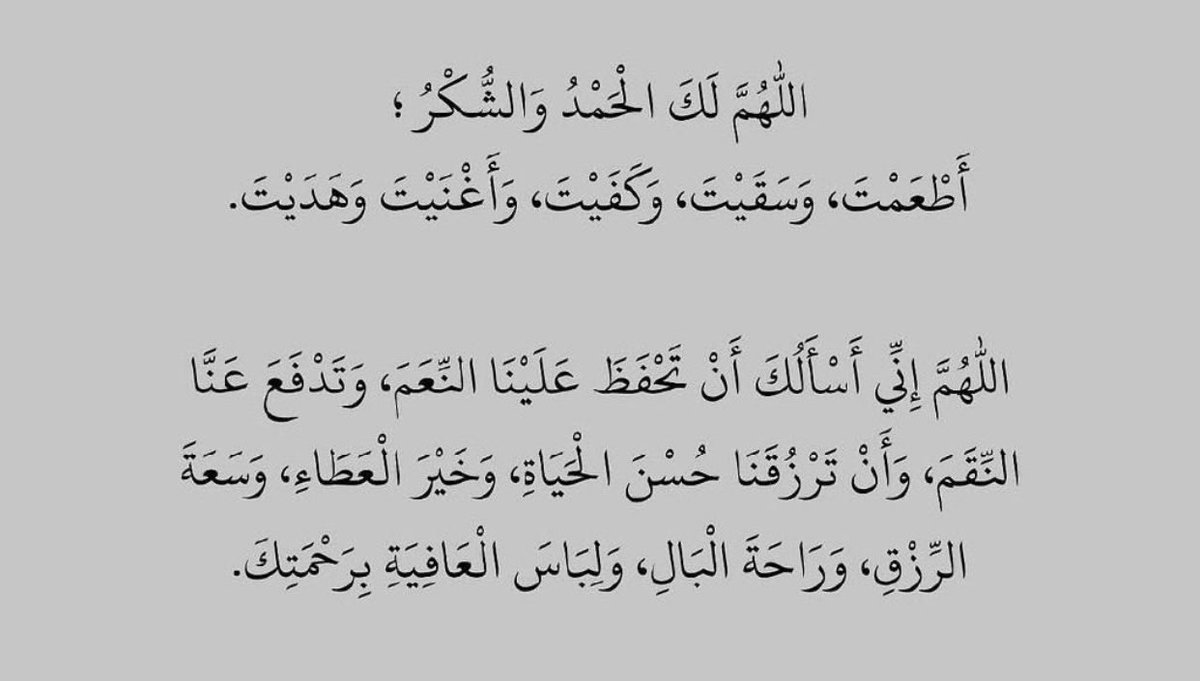 اللّٰهُمَّ لَكَ الْحَمْدُ وَالشُّكْرُ ؛
أَطْعَمْتَ، وَسَقَيْتَ، وَكَفَيْتَ، وَأَغْنَيْتَ وَهَدَيْتَ.
اللّٰهُمَّ إِنِّي أَسْأَلُكَ أَنْ تَحْفَظَ عَلَيْنَا النِّعَمَ، وَتَدْفَعَ عَنَّا
النِّقَمَ، وَأَنْ تَرْزُقَنَا حُسْنَ الْحَيَاةِ، وَخَيْرَ الْعَطَاءِ، وَسَعَةَ
الرِّزْقِ، وَرَاحَةَ الْبَالِ، وَلِبَاسَ الْعَافِيَةِ بِرَحْمَتِكَ.